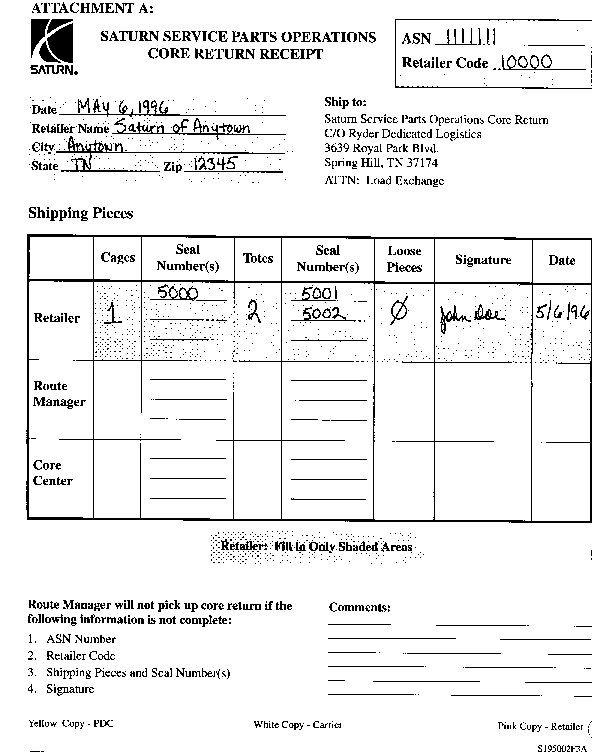 ATTACHMENT A:
SATURN.
SATURN SERVICE PARTS OPERATIONS
CORE RETURN RECEIPT
ASN 1111111
Retailer Code 10000
Date MAY 6, 1996
Retailer Name Saturn of Anytown
City Anytown
State TN Zip 12345
Ship to:
Saturn Service Parts Operations Core Return
C/O Ryder Dedicated Logistics
3639 Royal Park Blvd.
Spring Hill, TN 37174
ATTN: Load Exchange
Shipping Pieces
Cages Seal Number(s) Totes Seal Number(s) Loose Pieces Signature Date
Retailer 1 5000 2 5001 5002 Ø John Doe 5/6/96
Route Manager
Core Center
Retailer: Fill in Only Shaded Areas
Route Manager will not pick up core return if the
following information is not complete:
1. ASN Number
2. Retailer Code
3. Shipping Pieces and Seal Number(s)
4. Signature
Comments:
Yellow Copy - PDC White Copy - Carrier Pink Copy - Retailer
S195002F3A